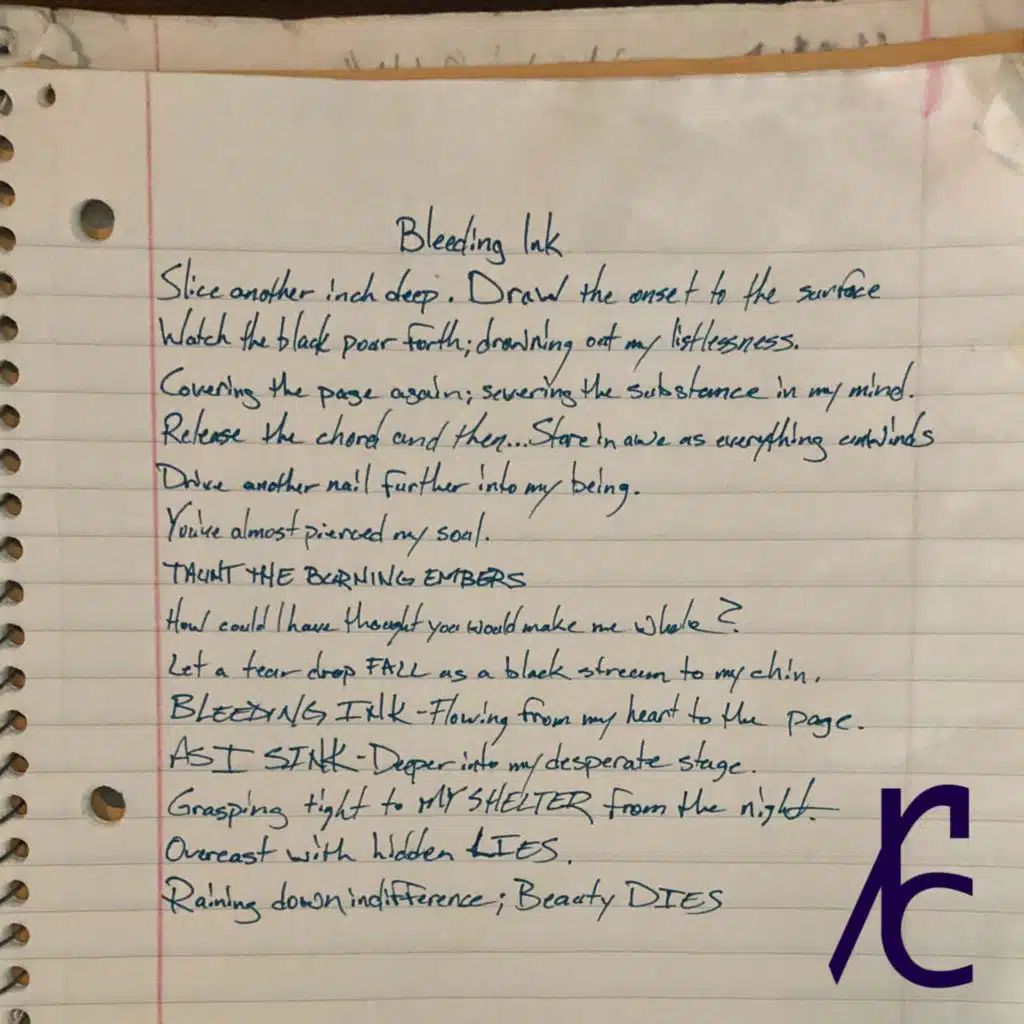 Bleeding Ink
Slice another inch deep. Draw the onset to the surface
Watch the black pour forth; drowning out my listlessness.
Covering the page again; severing the substance in my mind.
Release the chord and then... Stare in awe as everything unwinds
Drive another nail further into my being.
You've almost pierced my soul.
TAUNT THE BURNING EMBERS
How could I have thought you would make me whole?
Let a tear drop FALL as a black stream to my chin.
BLEEDING INK - Flowing from my heart to the page.
AS I SINK - Deeper into my desperate stage.
Grasping tight to MY SHELTER from the night.
Overcast with hidden LIES.
Raining down indifference; Beauty DIES
rc